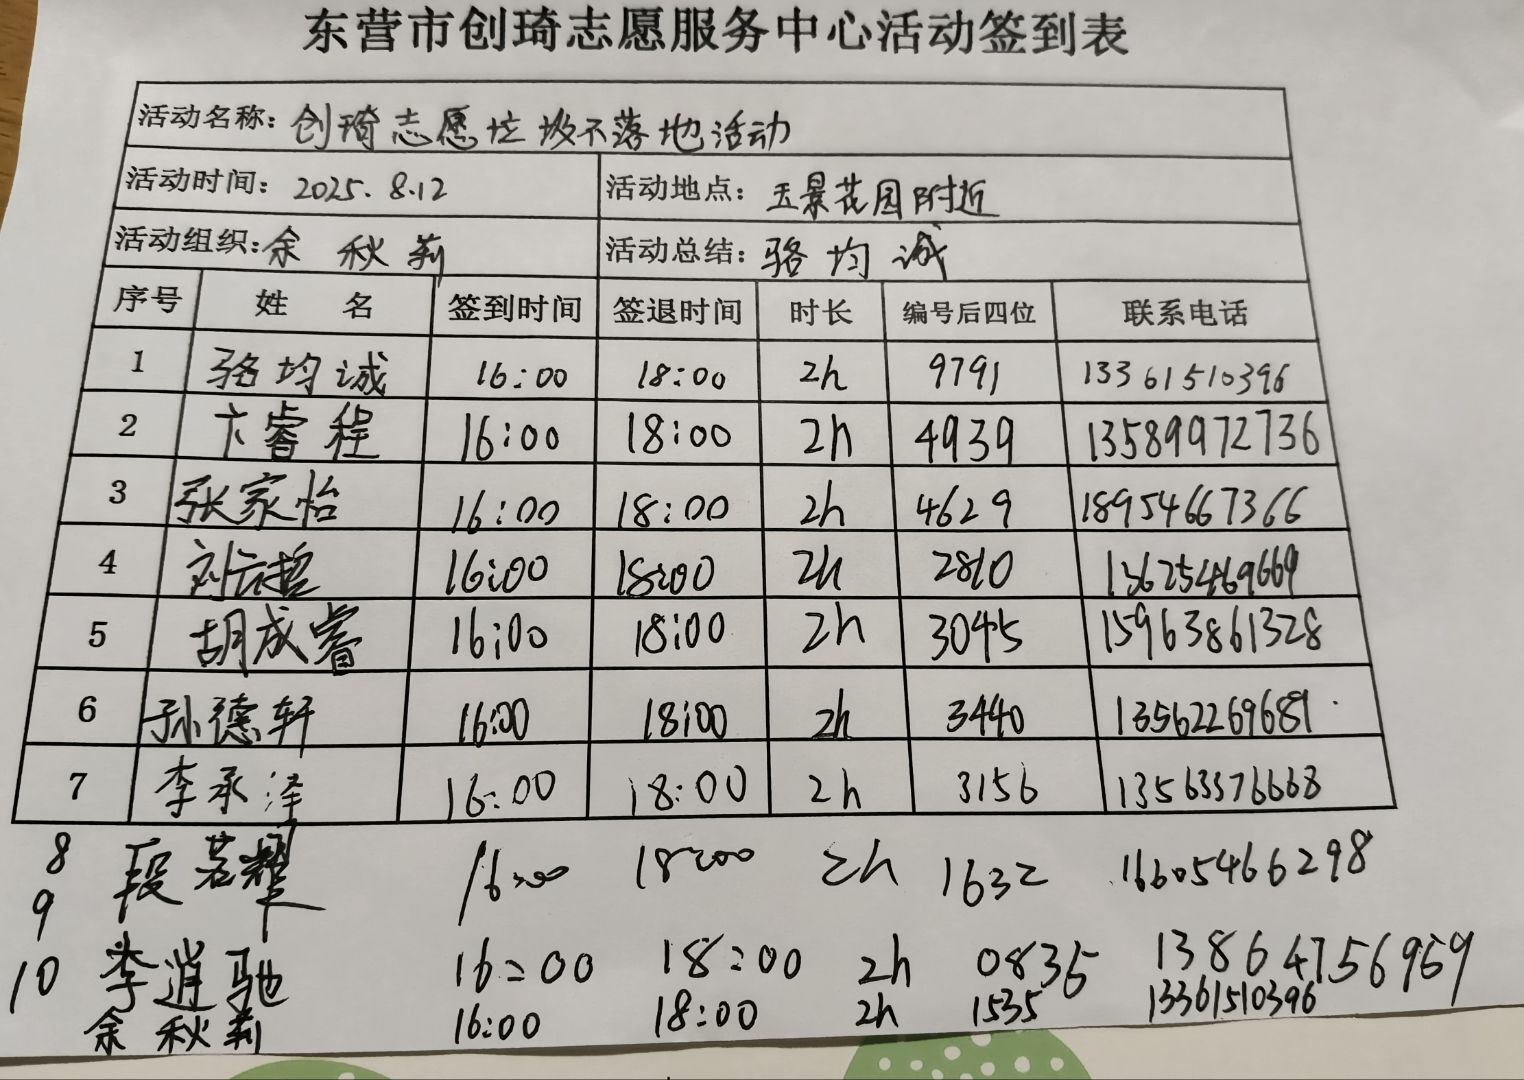 东营市创琦志愿服务中心活动签到表
活动名称：创琦志愿垃圾不落地活动
活动时间：2025.8.12 活动地点：玉景花园附近
活动组织：余秋莉 活动总结：骆均诚
序号 姓名 签到时间 签退时间 时长 编号后四位 联系电话
1 骆均诚 16:00 18:00 2h 9791 13361510396
2 卞睿程 16:00 18:00 2h 4939 13589972736
3 张家怡 16:00 18:00 2h 4629 18954667366
4 刘云哲 16:00 18:00 2h 2810 13625469669
5 胡成睿 16:00 18:00 2h 3045 15963861328
6 孙德轩 16:00 18:00 2h 3440 13562269681
7 李承泽 16:00 18:00 2h 3156 13563376668
8 段若耀 16:00 18:00 2h 1632 16605466298
9 李逍驰 16:00 18:00 2h 0835 13864756969
10 余秋莉 16:00 18:00 2h 1535 13361510396